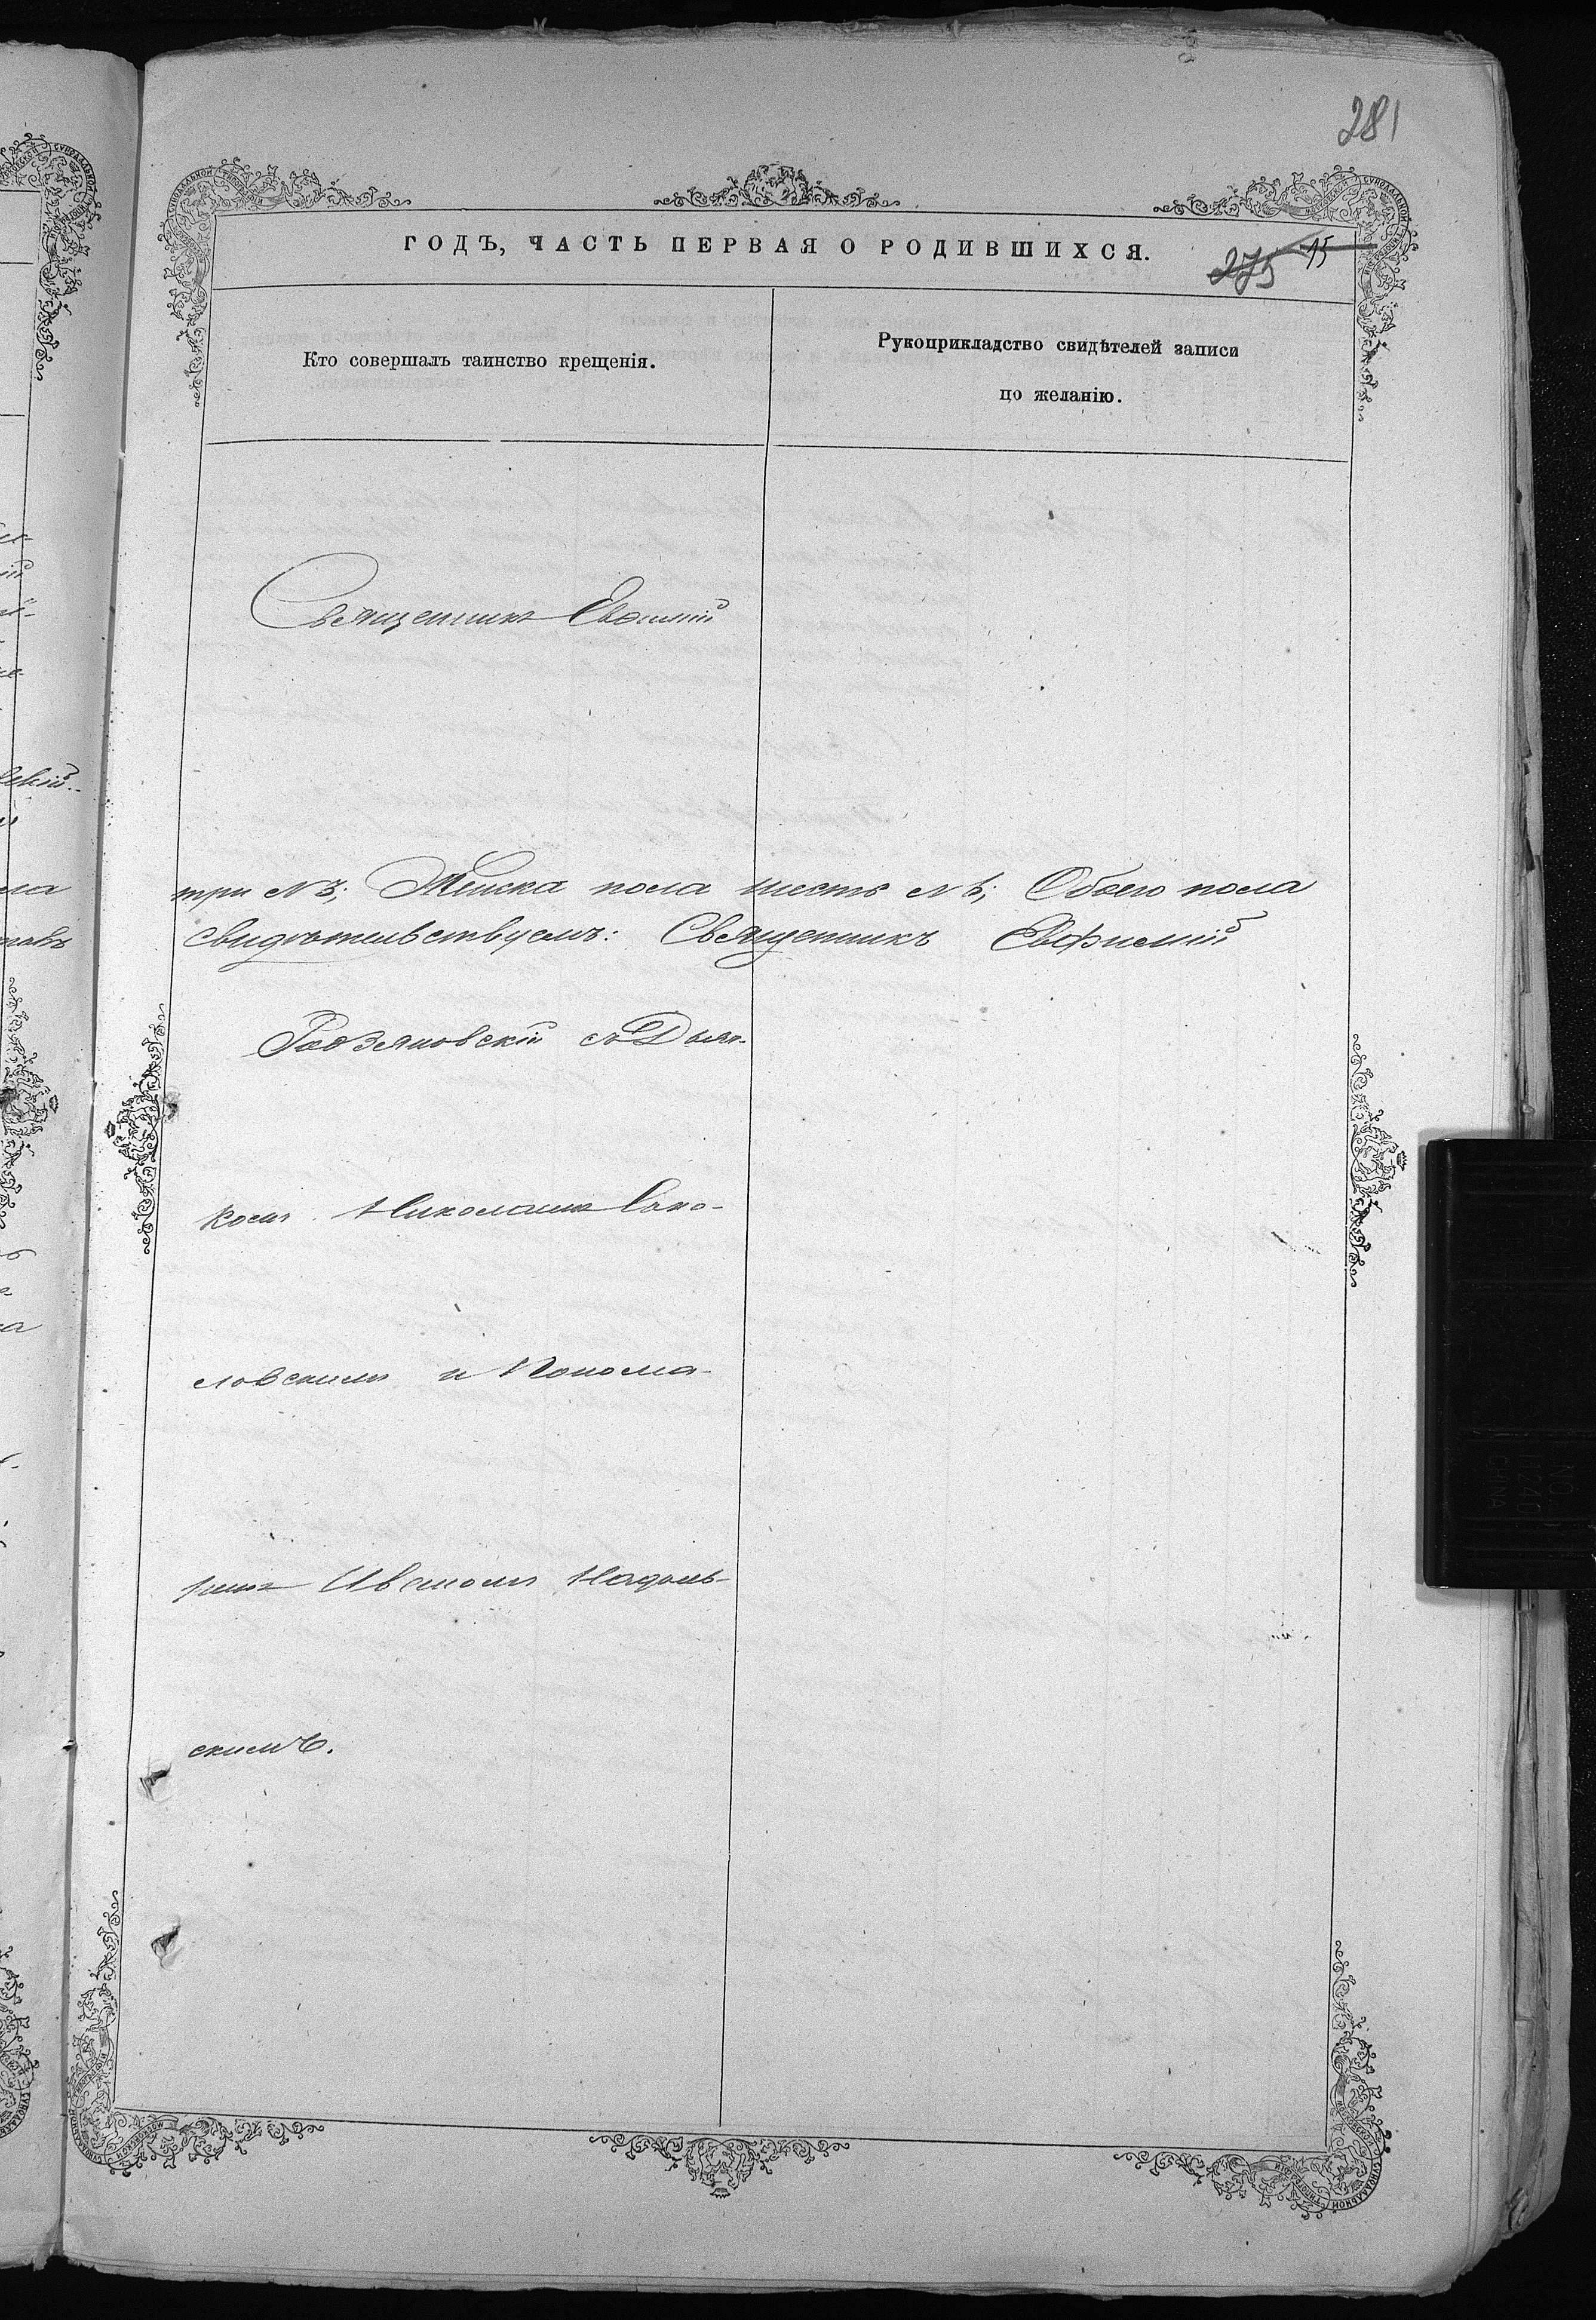 281
ГОДЪ, ЧАСТЬ ПЕРВАЯ О РОДИВШИХСЯ.
275 15
Кто совершалъ таинство крещенія.
Рукоприкладство свидѣтелей записи
по желанію.
Священникъ Евѳимій
три №; Женска пола шесть №; Обоего пола
свидѣтельствуемъ: Священникъ Евфимій
съ Дья-
кономъ Николаемъ Соко-
ловскимъ и Понома-
ремъ Иваномъ Надоль-
скимъ.